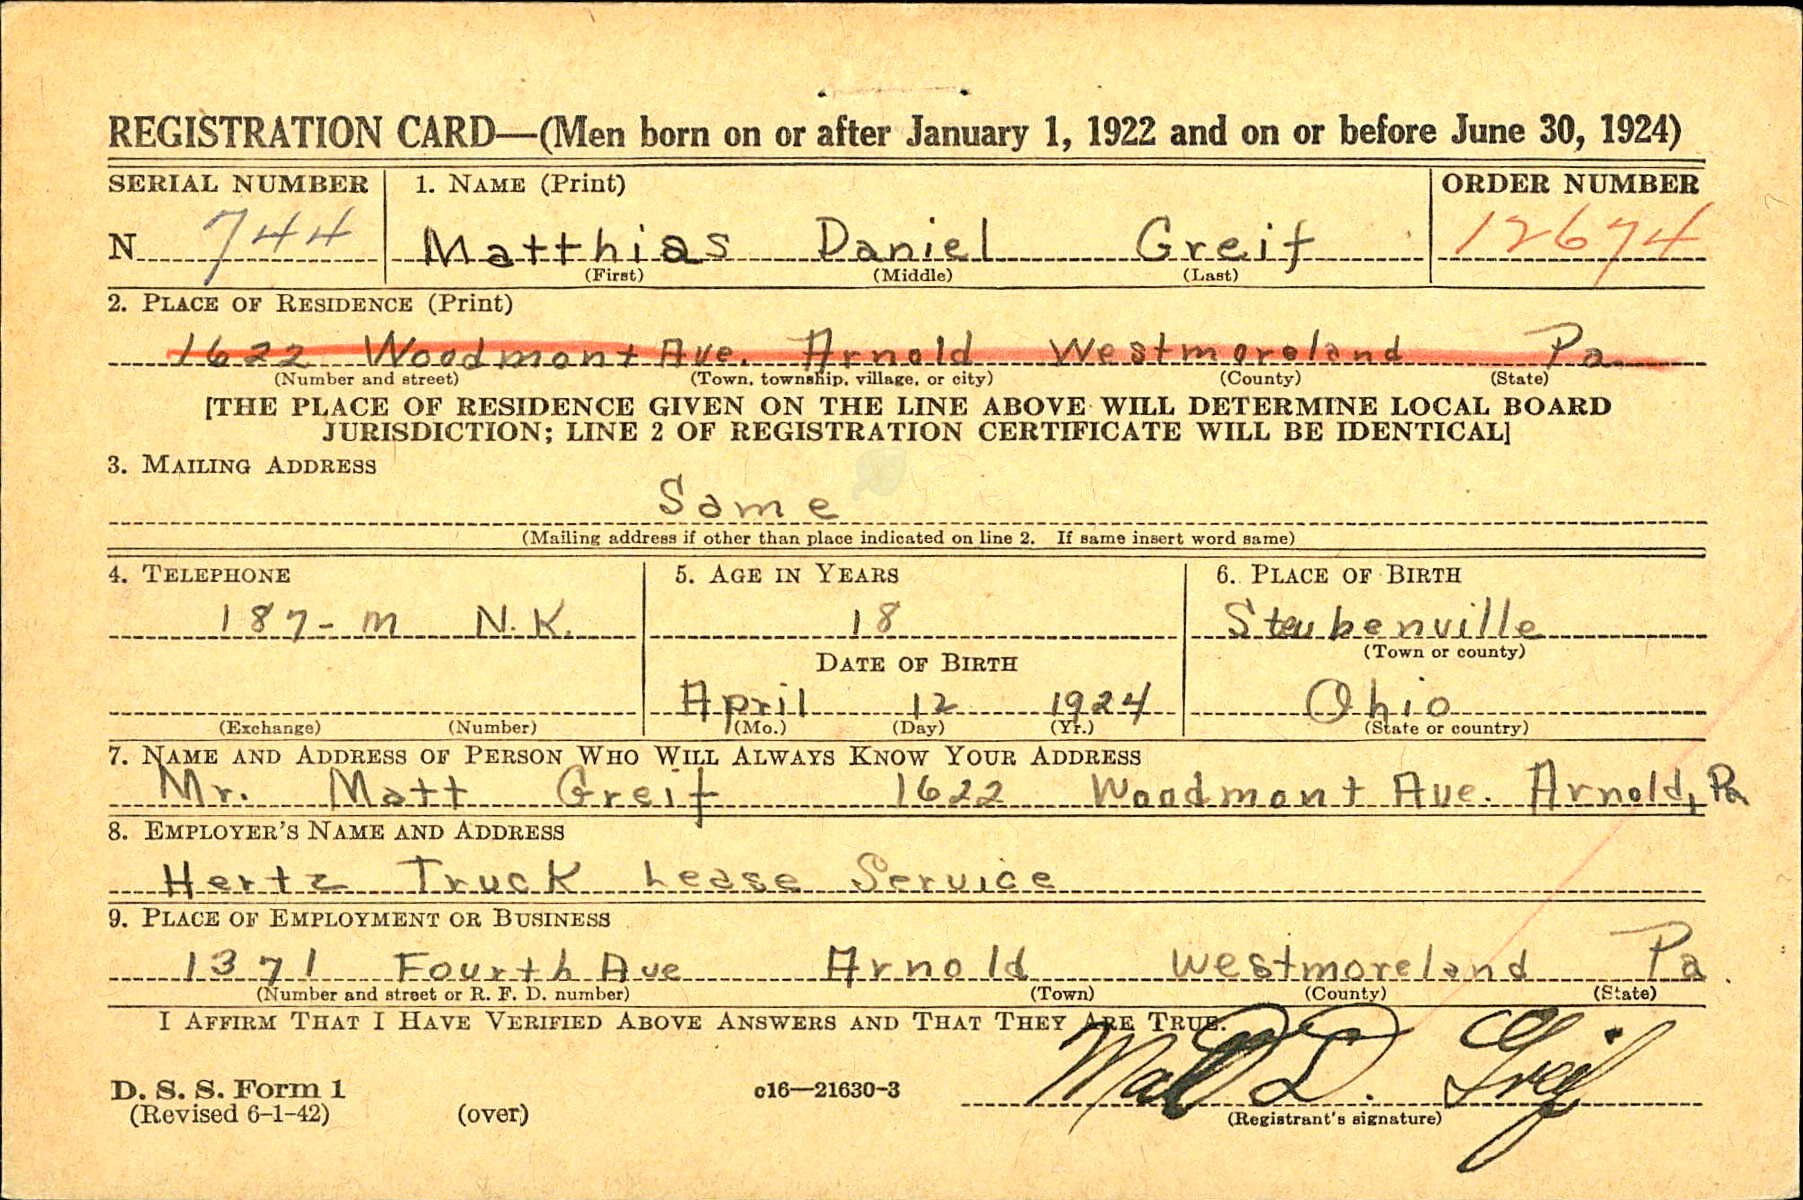 REGISTRATION CARD—(Men born on or after January 1, 1922 and on or before June 30, 1924)
SERIAL NUMBER 1. NAME (Print) ORDER NUMBER
N 744 Matthias Daniel Greif 12674
(First) (Middle) (Last)
2. PLACE OF RESIDENCE (Print)
1622 Woodmont Ave. Arnold Westmoreland Pa.
(Number and street) (Town, township, village, or city) (County) (State)
[THE PLACE OF RESIDENCE GIVEN ON THE LINE ABOVE WILL DETERMINE LOCAL BOARD
JURISDICTION; LINE 2 OF REGISTRATION CERTIFICATE WILL BE IDENTICAL]
3. MAILING ADDRESS
Same
(Mailing address if other than place indicated on line 2. If same insert word same)
4. TELEPHONE 5. AGE IN YEARS 6. PLACE OF BIRTH
187-M N.K. 18 Steubenville
(Town or county)
DATE OF BIRTH
April 12 1924 Ohio
(Exchange) (Number) (Mo.) (Day) (Yr.) (State or country)
7. NAME AND ADDRESS OF PERSON WHO WILL ALWAYS KNOW YOUR ADDRESS
Mr. Matt Greif 1622 Woodmont Ave. Arnold, Pa
8. EMPLOYER'S NAME AND ADDRESS
Hertz Truck Lease Service
9. PLACE OF EMPLOYMENT OR BUSINESS
1371 Fourth Ave Arnold Westmoreland Pa.
(Number and street or R. F. D. number) (Town) (County) (State)
I AFFIRM THAT I HAVE VERIFIED ABOVE ANSWERS AND THAT THEY ARE TRUE.
D. S. S. Form 1 c16—21630-3 Matt D. Greif
(Revised 6-1-42) (over) (Registrant's signature)